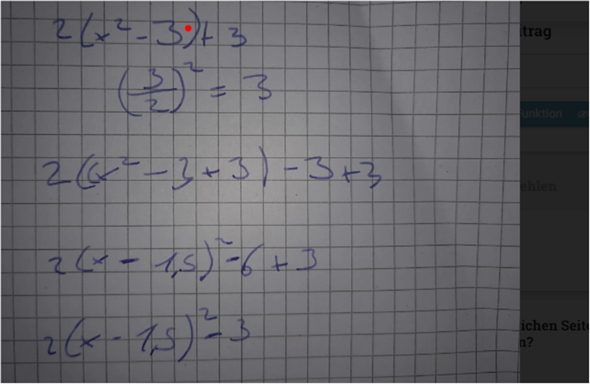 2(x² - 3) + 3
(3/2)² = 3
2(x² - 3 + 3) - 3 + 3
2(x - 1,5)² - 6 + 3
2(x - 1,5)² - 3
trag
unktion
ehlen
ichen Seite
n?